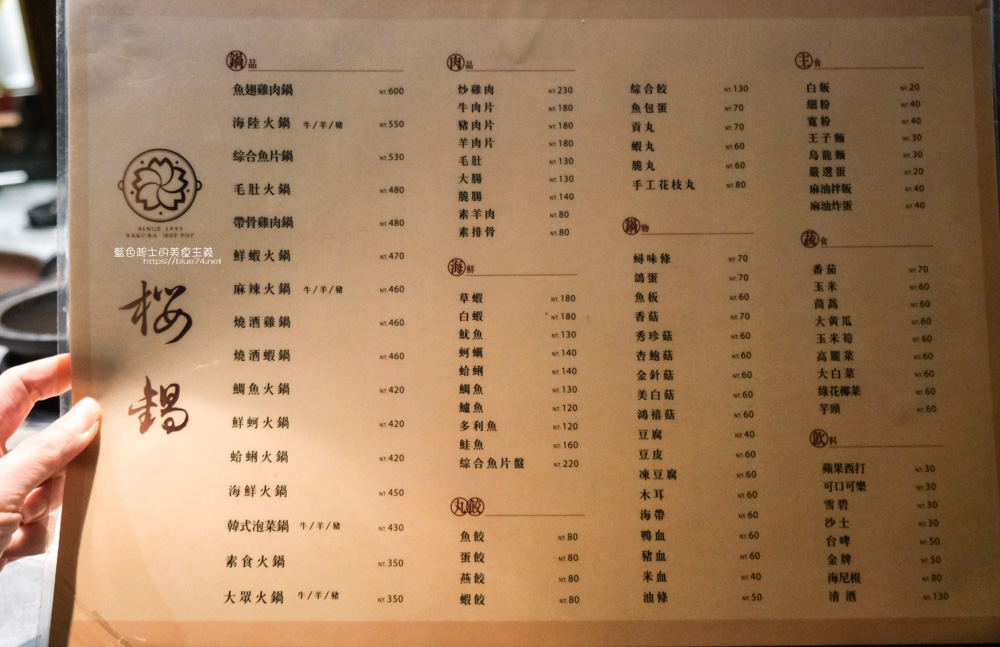 SINCE 1999
SAKURA HOT POT
藍色起士的美食主義
https://blue74.net
桜
鍋
鍋品
魚翅雞肉鍋 NT.600
海陸火鍋 牛/羊/豬 NT.550
綜合魚片鍋 NT.530
毛肚火鍋 NT.480
帶骨雞肉鍋 NT.480
鮮蝦火鍋 NT.470
麻辣火鍋 牛/羊/豬 NT.460
燒酒雞鍋 NT.460
燒酒蝦鍋 NT.460
鯛魚火鍋 NT.420
鮮蚵火鍋 NT.420
蛤蜊火鍋 NT.420
海鮮火鍋 NT.450
韓式泡菜鍋 牛/羊/豬 NT.430
素食火鍋 NT.350
大眾火鍋 牛/羊/豬 NT.350
肉品
炒雞肉 NT.230
牛肉片 NT.180
豬肉片 NT.180
羊肉片 NT.180
毛肚 NT.130
大腸 NT.130
脆腸 NT.140
素羊肉 NT.80
素排骨 NT.80
海鮮
草蝦 NT.180
白蝦 NT.180
魷魚 NT.130
蚵蠣 NT.140
蛤蜊 NT.140
鯛魚 NT.130
鱸魚 NT.120
多利魚 NT.120
鮭魚 NT.160
綜合魚片盤 NT.220
丸餃
魚餃 NT.80
蛋餃 NT.80
燕餃 NT.80
蝦餃 NT.80
綜合餃 NT.130
魚包蛋 NT.70
貢丸 NT.70
蝦丸 NT.60
脆丸 NT.60
手工花枝丸 NT.80
鍋物
蟳味條 NT.70
鴿蛋 NT.70
魚板 NT.60
香菇 NT.70
秀珍菇 NT.60
杏鮑菇 NT.60
金針菇 NT.60
美白菇 NT.60
鴻禧菇 NT.60
豆腐 NT.40
豆皮 NT.60
凍豆腐 NT.60
木耳 NT.60
海帶 NT.60
鴨血 NT.60
豬血 NT.60
米血 NT.40
油條 NT.50
主食
白飯 NT.20
細粉 NT.40
寬粉 NT.40
王子麵 NT.30
烏龍麵 NT.30
嚴選蛋 NT.20
麻油拌飯 NT.40
麻油炸蛋 NT.40
蔬食
番茄 NT.70
玉米 NT.60
茼蒿 NT.60
大黃瓜 NT.60
玉米筍 NT.60
高麗菜 NT.60
大白菜 NT.60
綠花椰菜 NT.60
芋頭 NT.60
飲料
蘋果西打 NT.30
可口可樂 NT.30
雪碧 NT.30
沙士 NT.30
台啤 NT.50
金牌 NT.50
海尼根 NT.80
清酒 NT.130